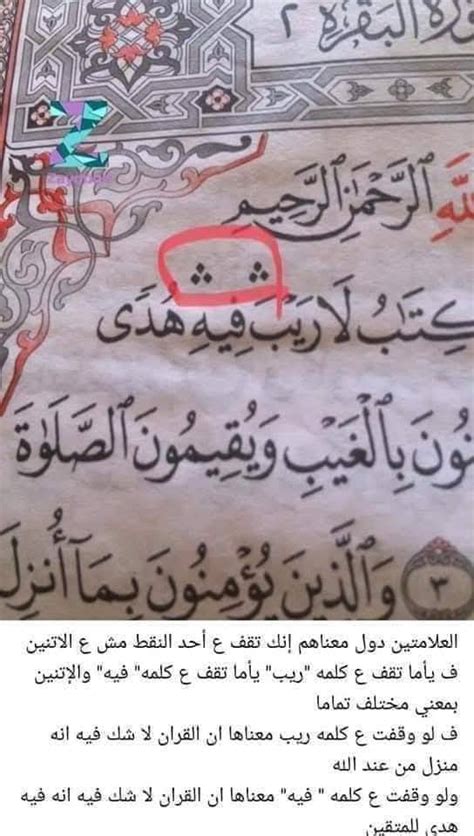 سورة البقرة ٢
الله الرَّحْمَٰنِ الرَّحِيمِ
كِتَابُ لَا رَيْبَ ۛ فِيهِ ۛ هُدًى
نُونَ بِالْغَيْبِ وَيُقِيمُونَ الصَّلَوٰةَ
٣ وَالَّذِينَ يُؤْمِنُونَ بِمَآ أُنزِلَ
العلامتين دول معناهم إنك تقف ع أحد النقط مش ع الاتنين
ف يأما تقف ع كلمه "ريب" يأما تقف ع كلمه" فيه" والإتنين
بمعني مختلف تماما
ف لو وقفت ع كلمه ريب معناها ان القران لا شك فيه انه
منزل من عند الله
ولو وقفت ع كلمه " فيه" معناها ان القران لا شك فيه انه فيه
هدى للمتقين